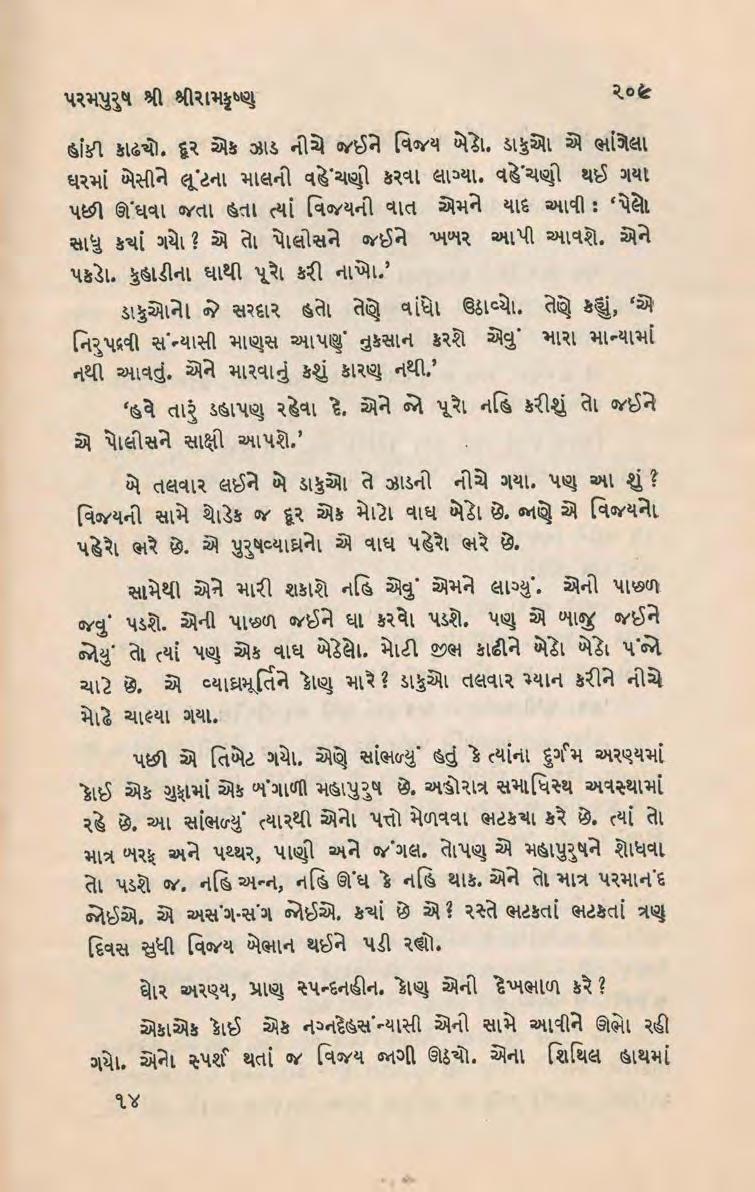 પરમપુરુષ શ્રી શ્રીરામકૃષ્ણ
૨૦૯
હાંકી કાઢ્યો. દૂર એક ઝાડ નીચે જઈને વિજય બેઠો. ડાકુઓ એ ભાંગેલા
ઘરમાં બેસીને લૂંટના માલની વહેંચણી કરવા લાગ્યા. વહેંચણી થઈ ગયા
પછી ઊંઘવા જતા હતા ત્યાં વિજયની વાત એમને યાદ આવી : ‘પેલો
સાધુ ક્યાં ગયો ? એ તો પોલીસને જઈને ખબર આપી આવશે. એને
પકડો. કુહાડીના ઘાથી પૂરો કરી નાખો.’
ડાકુઓનો જે સરદાર હતો તેણે વાંધો ઉઠાવ્યો. તેણે કહ્યું, ‘એ
નિરુપદ્રવી સંન્યાસી માણસ આપણું નુકસાન કરશે એવું મારા માન્યામાં
નથી આવતું. એને મારવાનું કશું કારણ નથી.’
‘હવે તારું ડહાપણ રહેવા દે. એને જો પૂરો નહિ કરીશું તો જઈને
એ પોલીસને સાક્ષી આપશે.’
બે તલવાર લઈને બે ડાકુઓ તે ઝાડની નીચે ગયા. પણ આ શું ?
વિજયની સામે થોડેક જ દૂર એક મોટો વાઘ બેઠો છે. જાણે એ વિજયનો
પહેરો ભરે છે. એ પુરુષવ્યાઘ્રનો એ વાઘ પહેરો ભરે છે.
સામેથી એને મારી શકાશે નહિ એવું એમને લાગ્યું. એની પાછળ
જવું પડશે. એની પાછળ જઈને ઘા કરવો પડશે. પણ એ બાજુ જઈને
જોયું તો ત્યાં પણ એક વાઘ બેઠેલો. મોટી જીભ કાઢીને બેઠો બેઠો પંજો
ચાટે છે. એ વ્યાઘ્રમૂર્તિને કોણ મારે ? ડાકુઓ તલવાર મ્યાન કરીને નીચે
મોઢે ચાલ્યા ગયા.
પછી એ તિબેટ ગયો. એણે સાંભળ્યું હતું કે ત્યાંના દુર્ગમ અરણ્યમાં
કોઈ એક ગુફામાં એક બંગાળી મહાપુરુષ છે. અહોરાત્ર સમાધિસ્થ અવસ્થામાં
રહે છે. આ સાંભળ્યું ત્યારથી એનો પત્તો મેળવવા ભટક્યા કરે છે. ત્યાં તો
માત્ર બરફ અને પથ્થર, પાણી અને જંગલ. તોપણ એ મહાપુરુષને શોધવા
તો પડશે જ. નહિ અન્ન, નહિ ઊંઘ કે નહિ થાક. એને તો માત્ર પરમાનંદ
જોઈએ. એ અસંગ-સંગ જોઈએ. ક્યાં છે એ ? રસ્તે ભટકતાં ભટકતાં ત્રણ
દિવસ સુધી વિજય બેભાન થઈને પડી રહ્યો.
ઘોર અરણ્ય, પ્રાણ સ્પન્દનહીન. કોણ એની દેખભાળ કરે ?
એકાએક કોઈ એક નગ્નદેહસંન્યાસી એની સામે આવીને ઊભો રહી
ગયો. એનો સ્પર્શ થતાં જ વિજય જાગી ઊઠ્યો. એના શિથિલ હાથમાં
૧૪